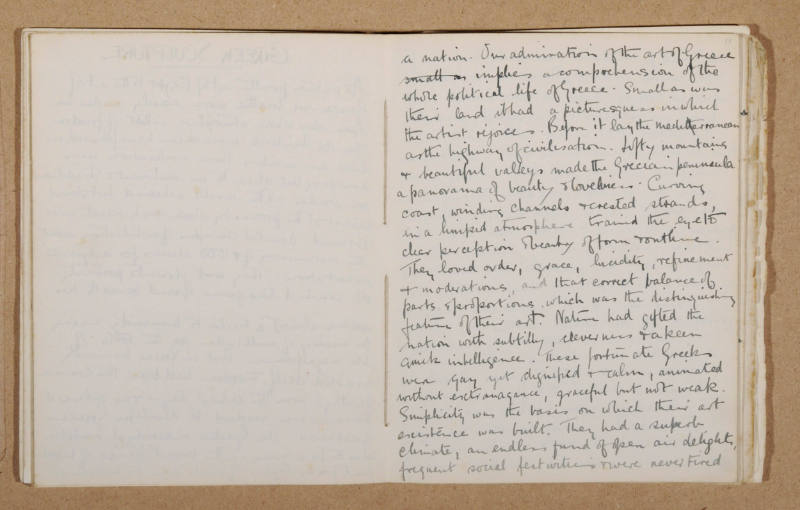 a nation. Our admiration of the art of Greece
small as implies a comprehension of the
whole political life of Greece. Small as was
their land it had a picturesqueness in which
the artist rejoices. Before it lay the mediterranean
as the highway of civilisation. Lofty mountains
+ beautiful valleys made the Grecian peninsula
a panorama of beauty & loveliness. Curving
coast, winding channels & crested strands,
in a limpid atmosphere trained the eye to
clear perception & beauty of form & outline.
They loved order, grace, lucidity, refinement
+ moderations, and that correct balance of
parts & proportions which was the distinguishing
feature of their art. Nature had gifted the
nation with subtilty, cleverness & a keen
quick intelligence. These fortunate Greeks
were gay yet dignified + calm, animated
without extravagance, graceful but not weak.
Simplicity was the basis on which their art
existence was built. They had a superb
climate, an endless fund of open air delights,
frequent social festivities & were never tired